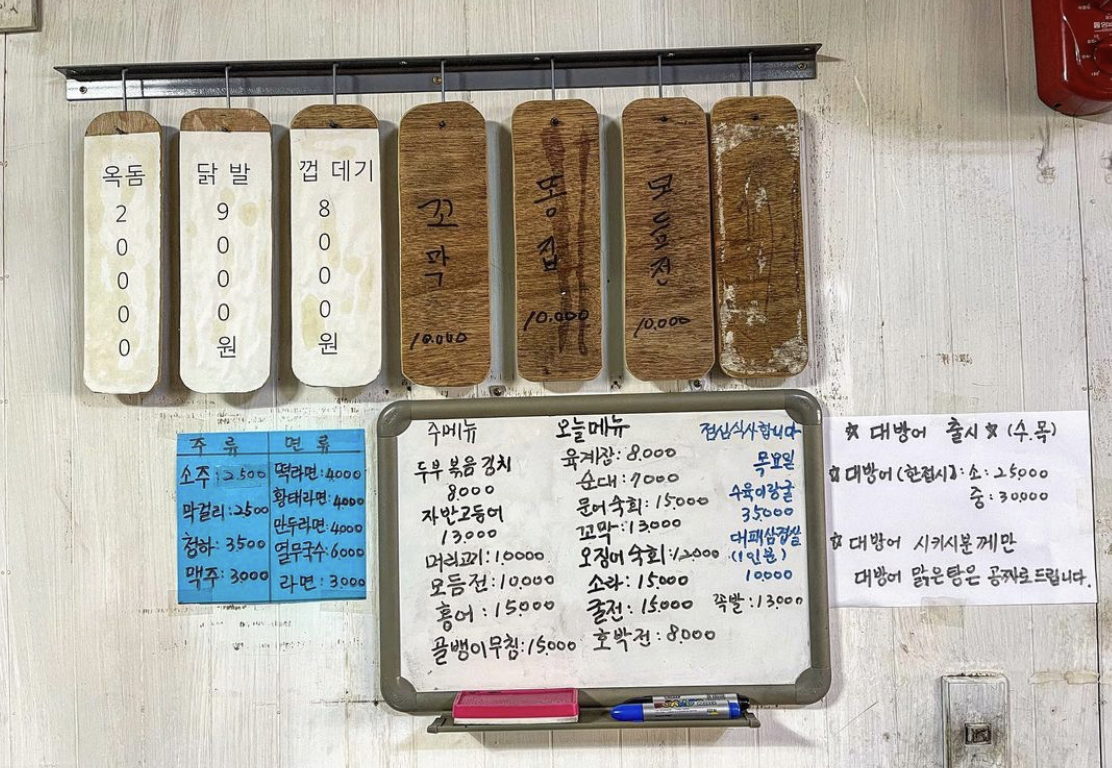 옥돔
20000
닭발
9000원
껍데기
8000원
꼬막
10.000
똥집
10.000
모듬전
10.000
주류
소주:2500
막걸리:2500
청하:3500
맥주:3000
면류
떡라면:4000
황태라면:4000
만두라면:4000
열무국수:6000
라면:3000
주메뉴
두부볶음김치
8.000
자반고등어
13.000
머리고기:10000
모듬전:10,000
홍어:15000
골뱅이무침:15000
오늘메뉴
육계장:8.000
순대:7000
문어숙회:15000
꼬막:13000
오징어숙회:12000
소라:15000
굴전:15000
호박전:8.000
점심식사합니다
목요일
수육이랑굴
35000
대패삼겹살
(1인분)
10,000
족발:13000
☆ 대방어 출시☆ (수.목)
☆대방어(한접시): 소:25000
중:30,000
☆ 대방어 시키시분께만
대방어 맑은탕은 공짜로드립니다.